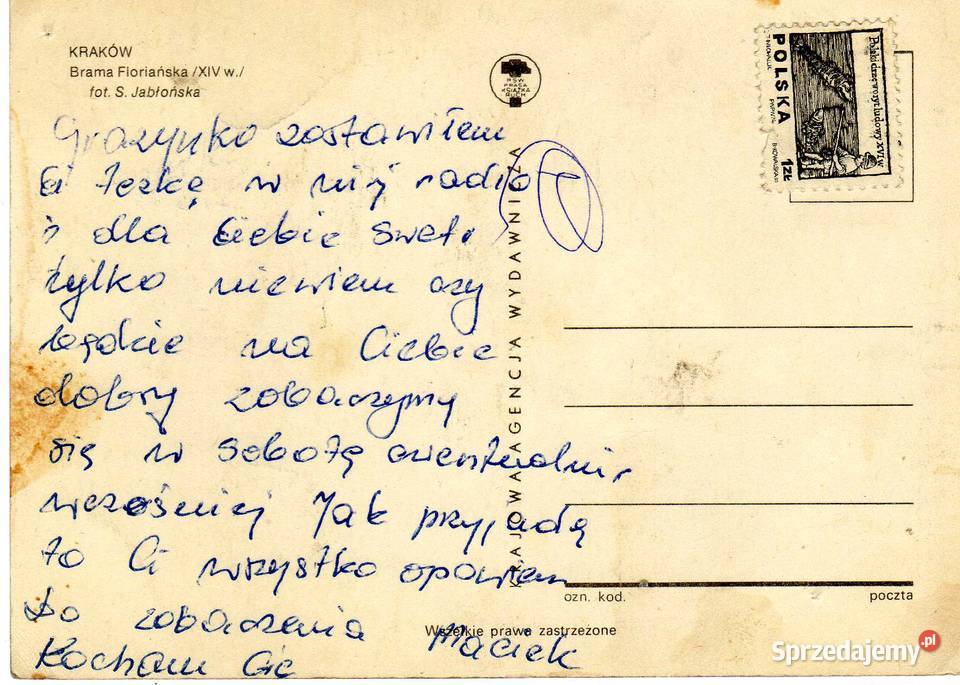 KRAKÓW
Brama Floriańska /XIV w./
fot. S. Jabłońska
RSW
PRASA
KSIĄŻKA
RUCH
POLSKA
1 ZŁ
Grażynko zostawiłem
Ci teczkę w niej radio
i dla Ciebie swetr
tylko niewiem czy
będzie na Ciebie
dobry zobaczymy
się w sobotę ewentualni
wcześniej Jak przyjadę
to Ci wszystko opowiem
Do zobaczenia Maciek
Kocham Cię
KRAJOWA AGENCJA WYDAWNICZA
ozn. kod.
poczta
Wszelkie prawa zastrzeżone
Sprzedajemy.pl